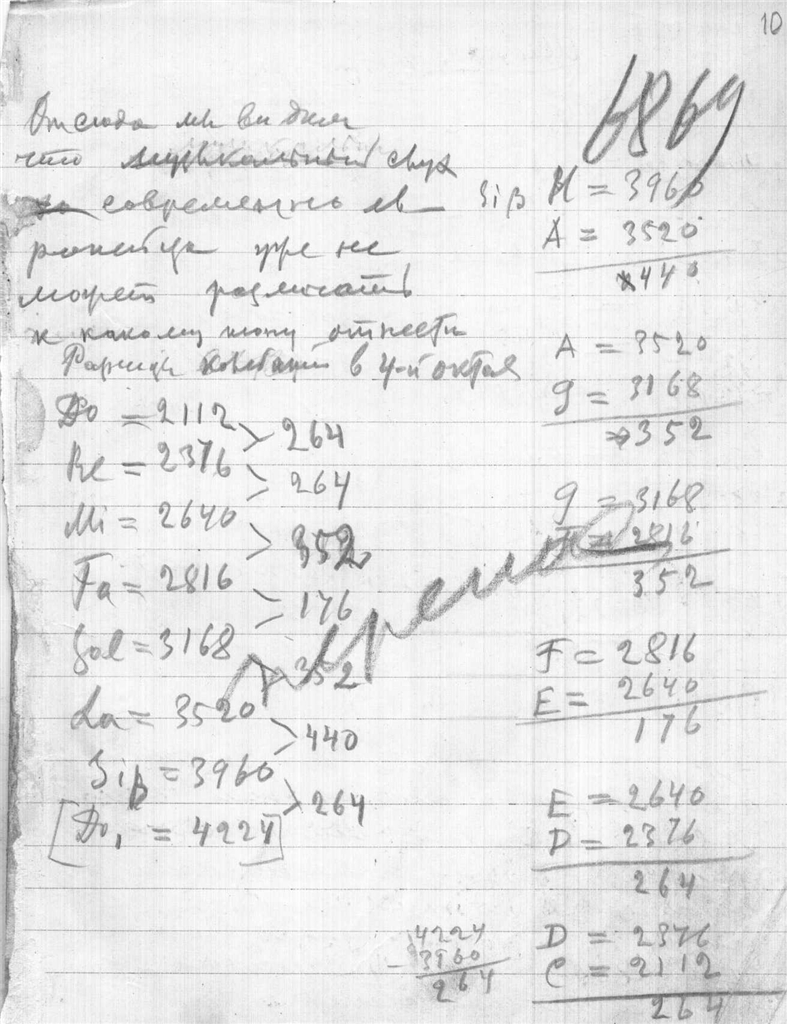 10
6869
Отсюда мы видим
что музыкальный слух
современного
уже не
может различать
к какому тону отнести
Разница колебаний в 4-й октав
Do = 2112
> 264
Re = 2376
> 264
Mi = 2640
> 352
Fa = 2816
> 176
Sol = 3168
> 352
La = 3520
> 440
Siβ = 3960
> 264
[Do, = 4224]
Siβ H = 3960
A = 3520
440
A = 3520
g = 3168
352
g = 3168
F = 2816
352
F = 2816
E = 2640
176
E = 2640
D = 2376
264
D = 2376
C = 2112
264
4224
- 3960
264